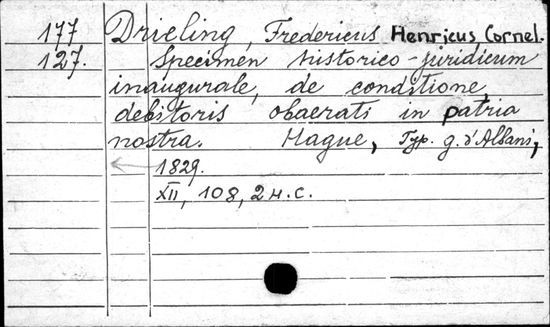 177 Drieling, Fredericus Henricus Cornel.
127. Specimen historico-juridicum
inaugurale, de conditione
debitoris obaerati in patria
nostra. Hague, Typ. g. d'Albani,
1829.
XII, 108, 2 н.с.